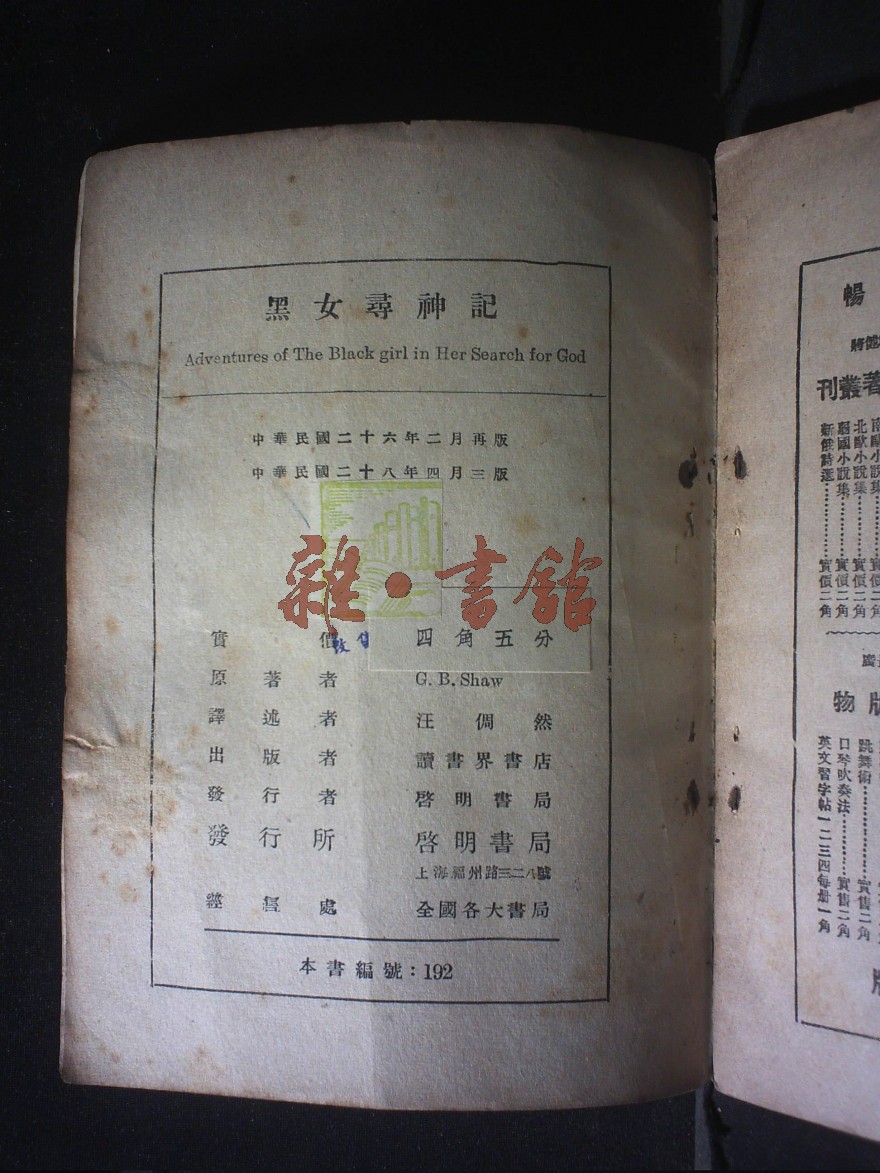 黑女尋神記
Adventures of The Black girl in Her Search for God
中華民國二十六年二月再版
中華民國二十八年四月三版
雜·書館
實價 四角五分
原著者 G. B. Shaw
譯述者 汪倜然
出版者 讀書界書店
發行者 啓明書局
發行所 啓明書局
上海福州路三二八號
經售處 全國各大書局
本書編號：192
暢
著叢刊
南歐小說集…………實價二角
北歐小說集…………實價二角
弱國小說集…………實價二角
新俄詩選…………實價二角
版物
跳舞術…………實售二角
口琴吹奏法…………實售二角
英文習字帖一二三四每册一角
版